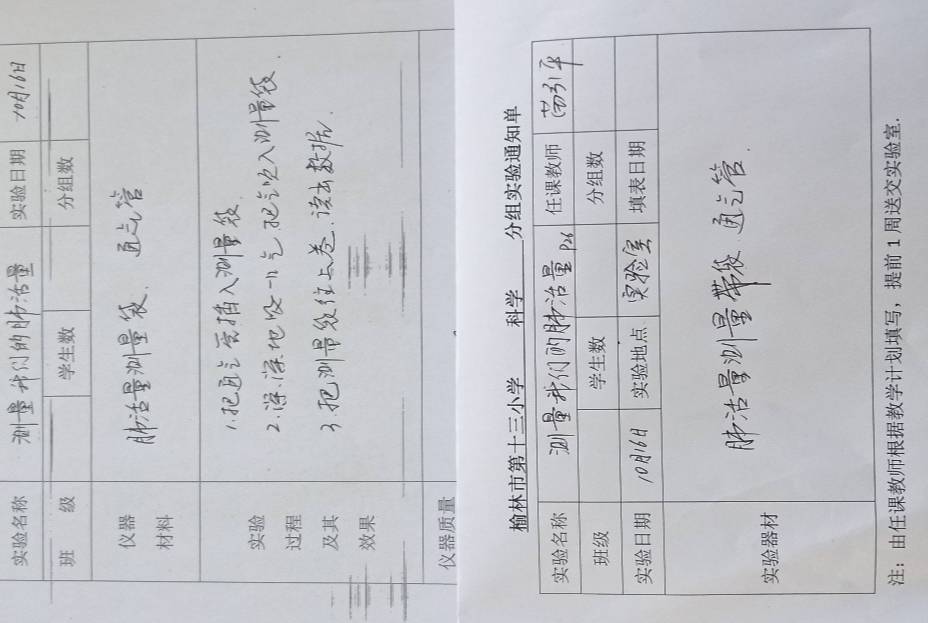 实验名称 测量我们的肺活量 实验日期 10月16日
班级 学生数 分组数
仪器材料 肺活量测量袋. 通气管
实验过程及其效果
1.把通气管插入测量袋.
2.深深地吸一口气把气吹入测量袋.
3.把测量袋往上卷.读出数据.
仪器质量
榆林市第十三小学 科学 分组实验通知单
实验名称 测量我们的肺活量 P26 任课教师
班级 学生数 分组数
实验日期 10月16日 实验地点 实验室 填表日期
实验器材 肺活量测量带袋.通气管.
注：由任课教师根据教学计划填写，提前1周送交实验室.